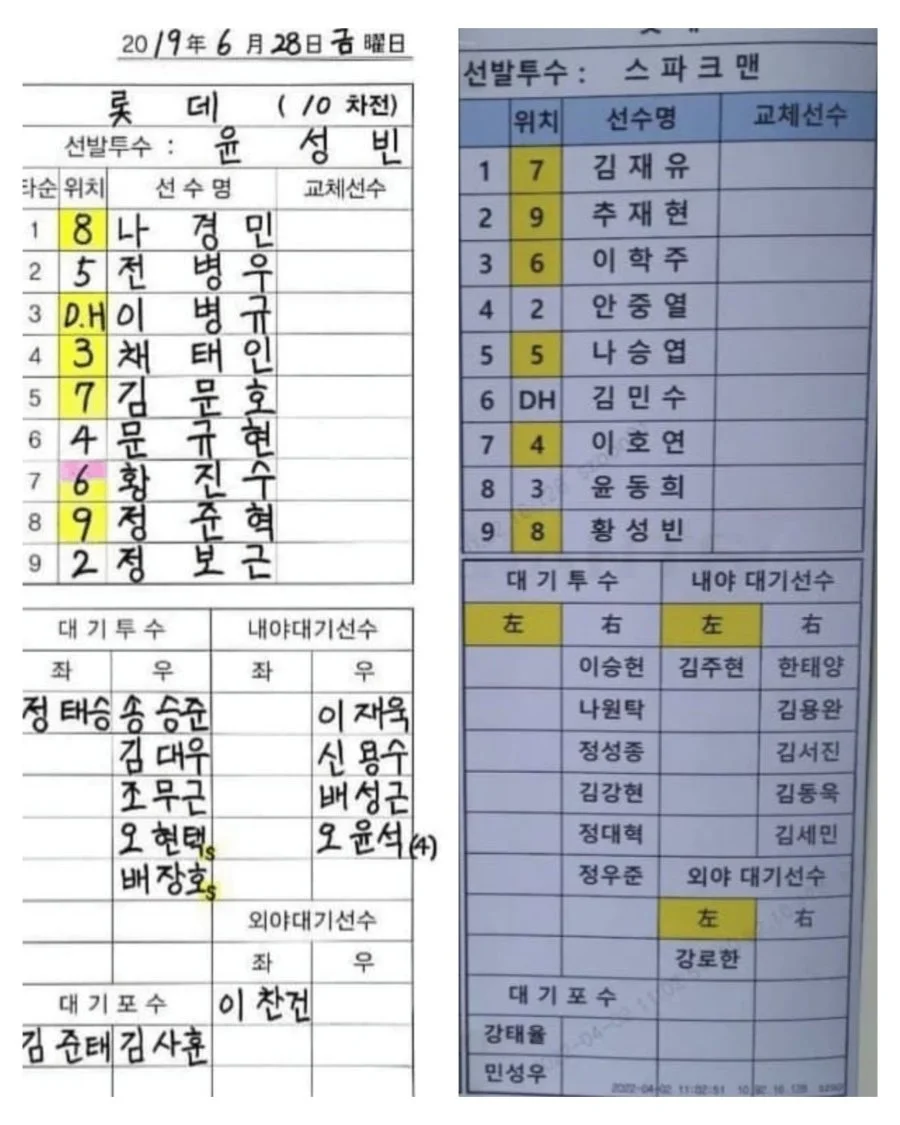 2019年 6月 28日 금 曜日
롯데 (10 차전)
선발투수 : 윤성빈
타순 위치 선수명 교체선수
1 8 나경민
2 5 전병우
3 D.H 이병규
4 3 채태인
5 7 김문호
6 4 문규현
7 6 황진수
8 9 정준혁
9 2 정보근
대기투수 내야대기선수
좌 우 좌 우
정태승 송승준 이재욱
김대우 신용수
조무근 배성근
오현택s 오윤석(4)
배장호s
외야대기선수
좌 우
대기포수 이찬건
김준태 김사훈
선발투수 : 스파크맨
위치 선수명 교체선수
1 7 김재유
2 9 추재현
3 6 이학주
4 2 안중열
5 5 나승엽
6 DH 김민수
7 4 이호연
8 3 윤동희
9 8 황성빈
대기투수 내야 대기선수
左 右 左 右
이승헌 김주현 한태양
나원탁 김용완
정성종 김서진
김강현 김동욱
정대혁 김세민
정우준 외야 대기선수
左 右
강로한
대기포수
강태율
민성우
2022-04-02 11:02:51